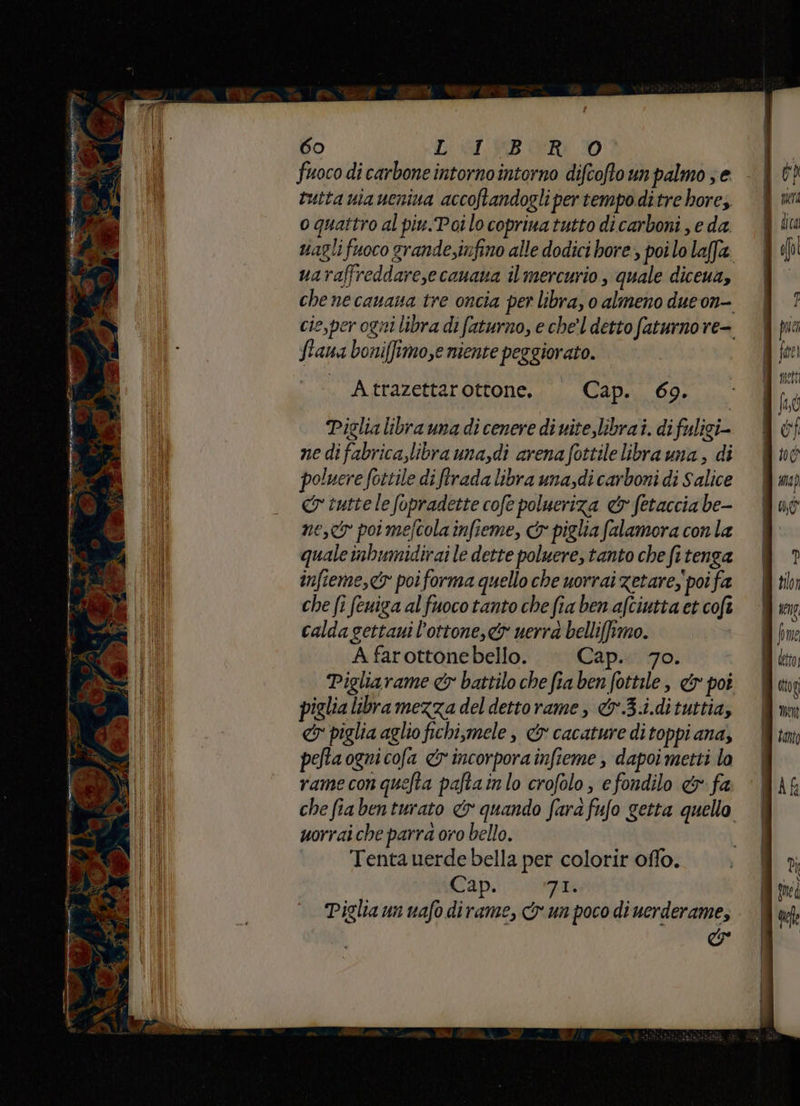 60 L I B R O
fuoco di carbone intorno intorno diſcoſto un palmo, e
tutta uia ueniua accoſtandogli per tempo di tre hore,
o quattro al piu. Poi lo copriua tutto di carboni, e da
uagli fuoco grande, inſino alle dodici hore, poi lo laſſa
ua raffreddare, e cauaua il mercurio, quale diceua,
che ne cauaua tre oncia per libra, o almeno due on-
cie, per ogni libra di ſaturno, e che'l detto ſaturno re-
ſtaua boniſſimo, e niente peggiorato.
A trazettar ottone. Cap. 69.
Piglia libra una di cenere di uite, libra i. di fuligi-
ne di fabrica, libra una, di arena ſottile libra una, di
poluere ſottile di ſtrada libra una, di carboni di Salice
& tutte le ſopradette coſe polueriza & ſetaccia be-
ne, & poi meſcola inſieme, & piglia ſalamora con la
quale inhumidirai le dette poluere, tanto che ſi tenga
inſieme, & poi forma quello che uorrai zetare, poi fa
che ſi ſeuiga al fuoco tanto che ſia ben aſciutta et coſi
calda gettaui l'ottone, & uerrà belliſſimo.
A far ottone bello. Cap. 70.
Piglia rame & battilo che ſia ben ſottile, & poi
piglia libra mezza del detto rame, & .3.i. di tuttia,
& piglia aglio fichi, mele, & cacature di toppi ana,
peſta ogni coſa & incorpora inſieme, dapoi metti lo
rame con queſta paſta in lo croſolo, e fondilo & fa
che ſia ben turato & quando ſarà fuſo getta quello
uorrai che parrà oro bello.
Tenta uerde bella per colorir oſſo.
Cap. 71.
Piglia un uaſo di rame, & un poco di uerderame,
&